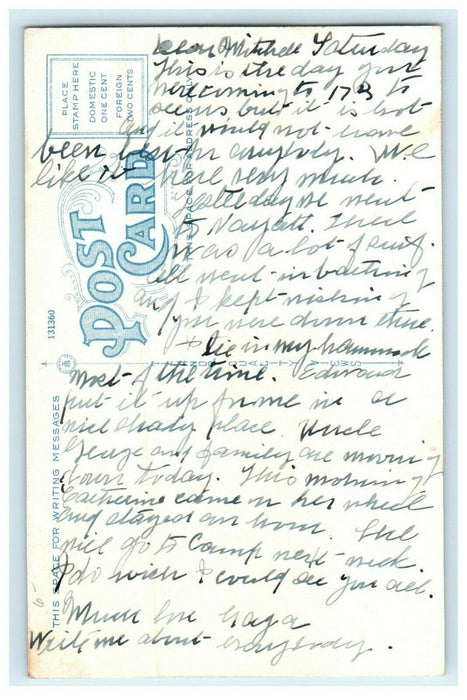 Dear Mitchell Saturday
This is the day you
were coming to 173 to
see us but it is hot
and it would not have
been best for anybody. We
like it here very much.
Yesterday we went
to Nayatt. There
was a lot of surf.
all went in bathing
and I kept wishing
you were down there.
I lie in my hammock
most of the time. Edward
put it up for me in a
nice shady place. Uncle
George and family are moving
down today. This morning
Catherine came on her wheel
and stayed an hour. She
will go to Camp next week.
I do wish I could see you all.
Much love Gaga
Write me about everybody.
PLACE
STAMP HERE
DOMESTIC
ONE CENT
FOREIGN
TWO CENTS
THIS SPACE FOR ADDRESS ONLY
POST
CARD
131360
THIS SPACE FOR WRITING MESSAGES